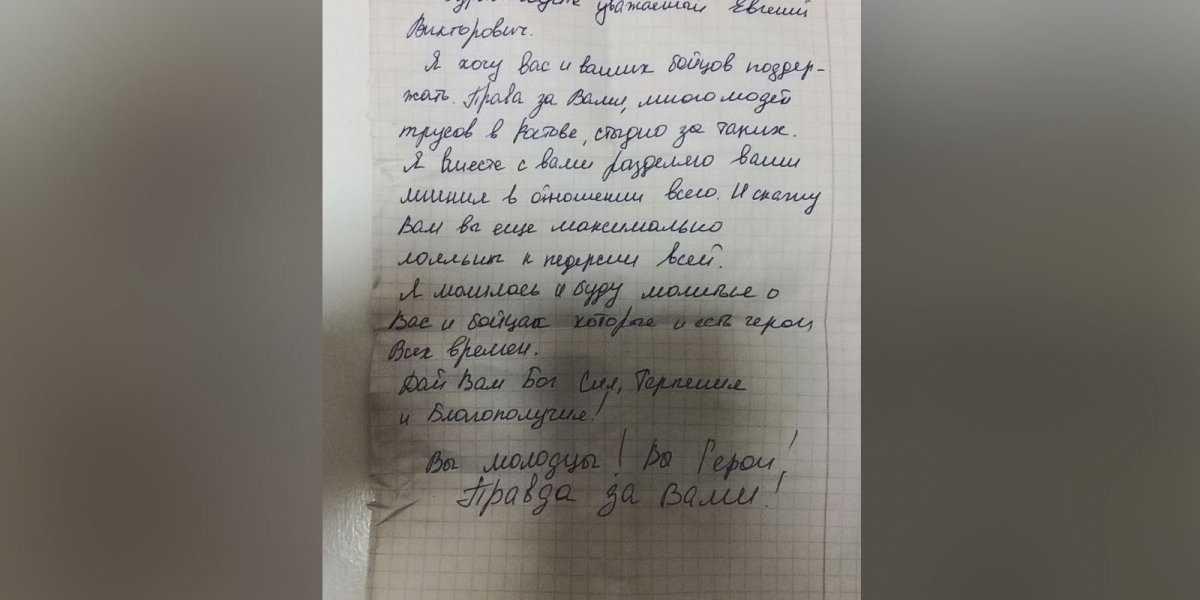 уважаемый Евгений
Викторович.
Я хочу вас и ваших бойцов поддер-
жать. Права за Вами, много людей
трусов в Ростове, стыдно за таких.
Я вместе с вами разделяю ваши
мнения в отношении всего. И скажу
Вам вы еще максимально
лояльны к педерсии всей.
Я молилась и буду молиться о
Вас и бойцах которые и есть герои
Всех времен.
Дай Вам Бог Сил, Терпения
и Благополучия!
Вы молодцы! Вы Герои!
Правда за Вами!